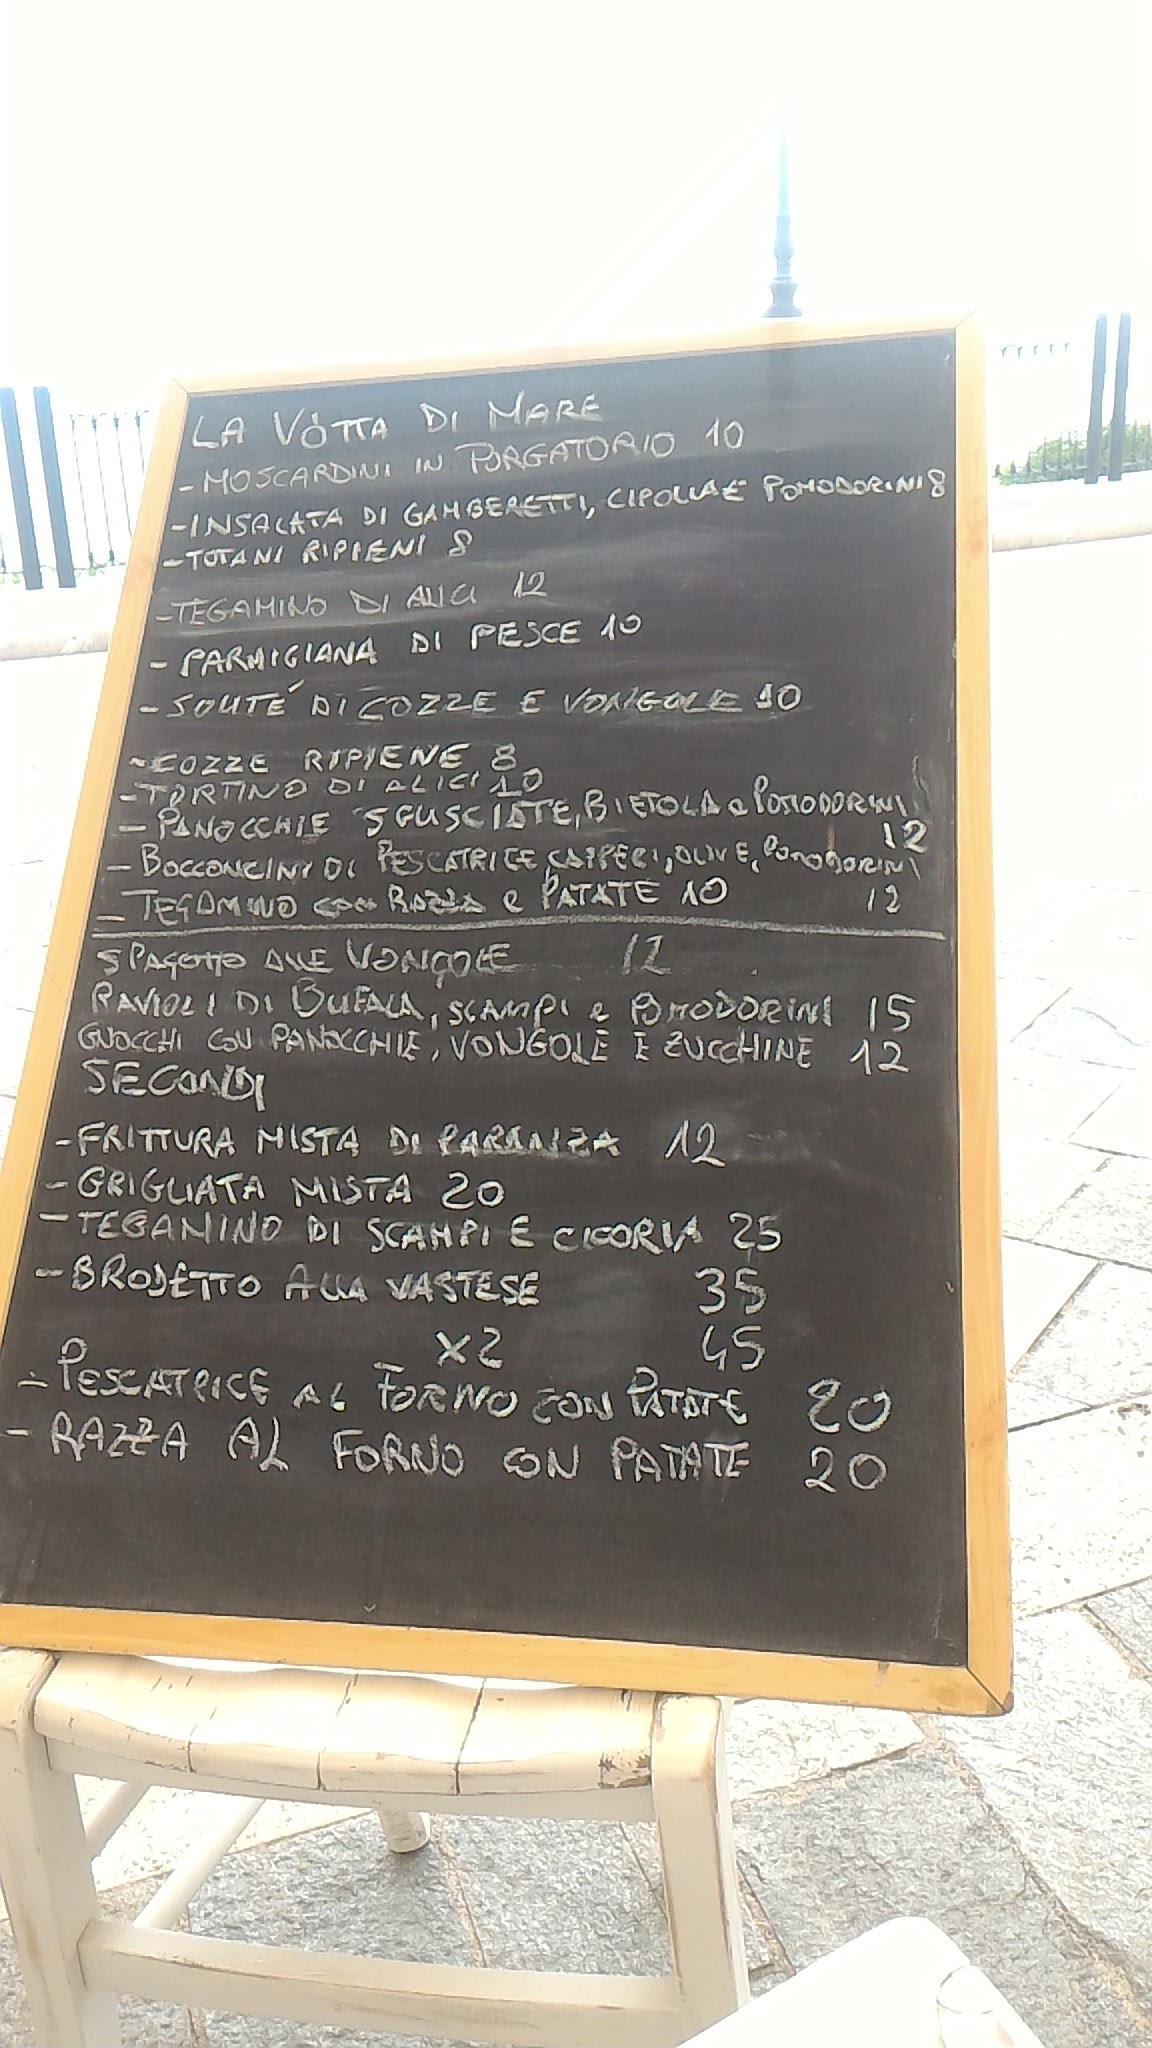 LA VÒTTA DI MARE
- MOSCARDINI IN PURGATORIO 10
- INSALATA DI GAMBERETTI, CIPOLLA E POMODORINI 8
- TOTANI RIPIENI 8
- TEGAMINO DI ALICI 12
- PARMIGIANA DI PESCE 10
- SOUTÉ DI COZZE E VONGOLE 10
- COZZE RIPIENE 8
- TORTINO DI ALICI 10
- PANOCCHIE SGUSCIATE, BIETOLA e POMODORINI
12
- BOCCONCINI DI PESCATRICE, CAPPERI, OLIVE, POMODORINI
- TEGAMINO con RAZZA e PATATE 10 12
SPAGOTTO ALLE VONGOLE 12
RAVIOLI DI BUFALA, SCAMPI e POMODORINI 15
GNOCCHI CON PANOCCHIE, VONGOLE E ZUCCHINE 12
SECONDI
- FRITTURA MISTA DI PARANZA 12
- GRIGLIATA MISTA 20
- TEGAMINO DI SCAMPI E CICORIA 25
- BRODETTO ALLA VASTESE 35
X2 45
- PESCATRICE AL FORNO CON PATATE 20
- RAZZA AL FORNO CON PATATE 20